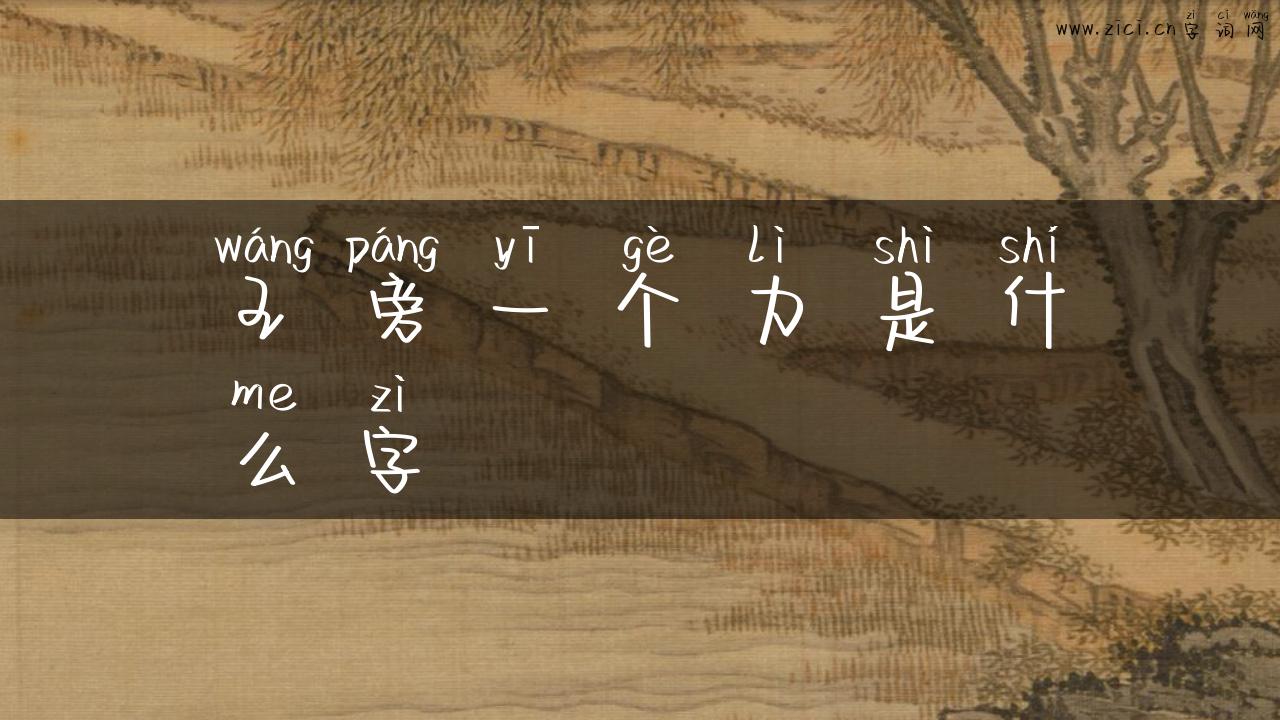 zì cí wǎng
www.zici.cn 字 词 网
wáng páng yī gè lì shì shí
王 旁 一 个 力 是 什
me zì
么 字